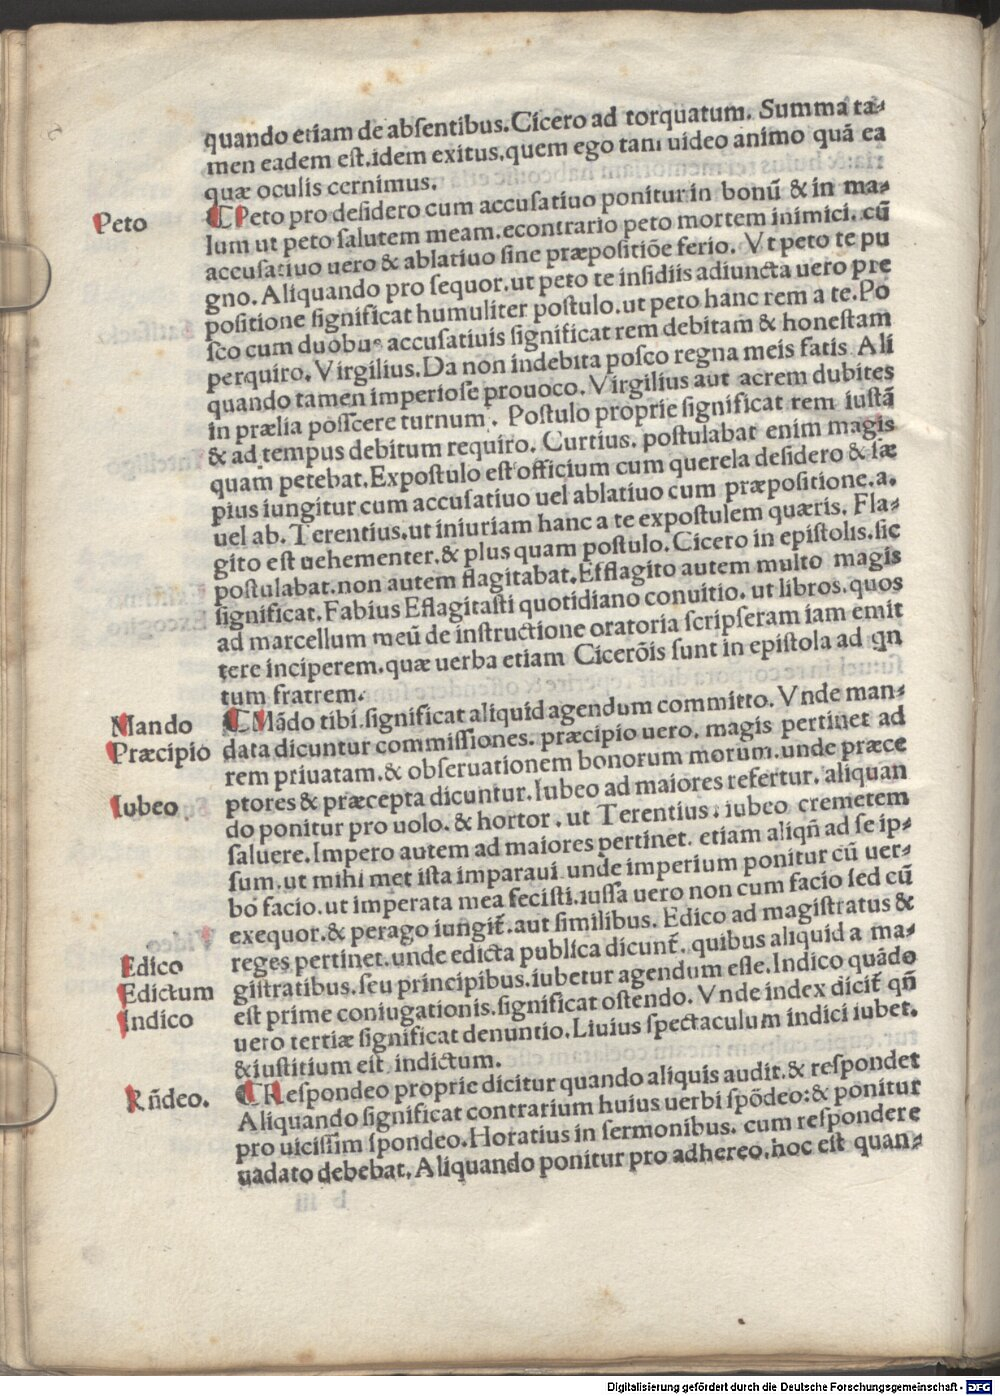 quando etiam de absentibus. Cicero ad torquatum. Summa ta-
men eadem est. idem exitus. quem ego tam uideo animo quā ea
quæ oculis cernimus.
Peto
Peto pro desidero cum accusatiuo ponitur in bonū & in ma-
lum ut peto salutem meam. econtrario peto mortem inimici. cū
accusatiuo uero & ablatiuo sine præpositiōe ferio. Vt peto te pu
gno. Aliquando pro sequor. ut peto te insidiis adiuncta uero pre
positione significat humuliter postulo. ut peto hanc rem a te. Po
sco cum duobus accusatiuis significat rem debitam & honestam
perquiro. Virgilius. Da non indebita posco regna meis fatis Ali
quando tamen imperiose prouoco. Virgilius aut acrem dubites
in prælia posscere turnum. Postulo proprie significat rem iustā
& ad tempus debitum requiro. Curtius. postulabat enim magis
quam petebat. Expostulo est officium cum querela desidero & sæ
pius iungitur cum accusatiuo uel ablatiuo cum præpositione. a.
uel ab. Terentius. ut iniuriam hanc a te expostulem quæris. Fla-
gito est uehementer. & plus quam postulo. Cicero in epistolis. sic
postulabat. non autem flagitabat. Efflagito autem multo magis
significat. Fabius Eflagitasti quotidiano conuitio. ut libros. quos
ad marcellum meū de instructione oratoria scripseram iam emit
tere inciperem. quæ uerba etiam Cicerōis sunt in epistola ad qn
tum fratrem.
Mando
Mādo tibi. significat aliquid agendum committo. Vnde man-
Præcipio
data dicuntur commissiones. præcipio uero. magis pertinet ad
rem priuatam. & obseruationem bonorum morum. unde præce
Iubeo
ptores & præcepta dicuntur. Iubeo ad maiores refertur. aliquan
do ponitur pro uolo. & hortor. ut Terentius. iubeo cremetem
saluere. Impero autem ad maiores pertinet. etiam aliqn̄ ad se ip-
sum. ut mihi met ista imparaui. unde imperium ponitur cū uer-
bo facio. ut imperata mea fecisti. iussa uero non cum facio sed cū
exequor. & perago iungit̄. aut similibus. Edico ad magistratus &
Edico
reges pertinet. unde edicta publica dicunt̄. quibus aliquid a ma-
Edictum
gistratibus. seu principibus. iubetur agendum esse. Indico quādo
Indico
est prime coniugationis. significat ostendo. Vnde index dicit̄ qn̄
uero tertiæ significat denuntio. Liuius spectaculum indici iubet.
& iustitium est indictum.
Rn̄deo.
Respondeo proprie dicitur quando aliquis audit. & respondet
Aliquando significat contrarium huius uerbi spōdeo: & ponitur
pro uicissim spondeo. Horatius in sermonibus. cum respondere
uadato debebat. Aliquando ponitur pro adhereo. hoc est quan-
Digitalisierung gefördert durch die Deutsche Forschungsgemeinschaft - DFG